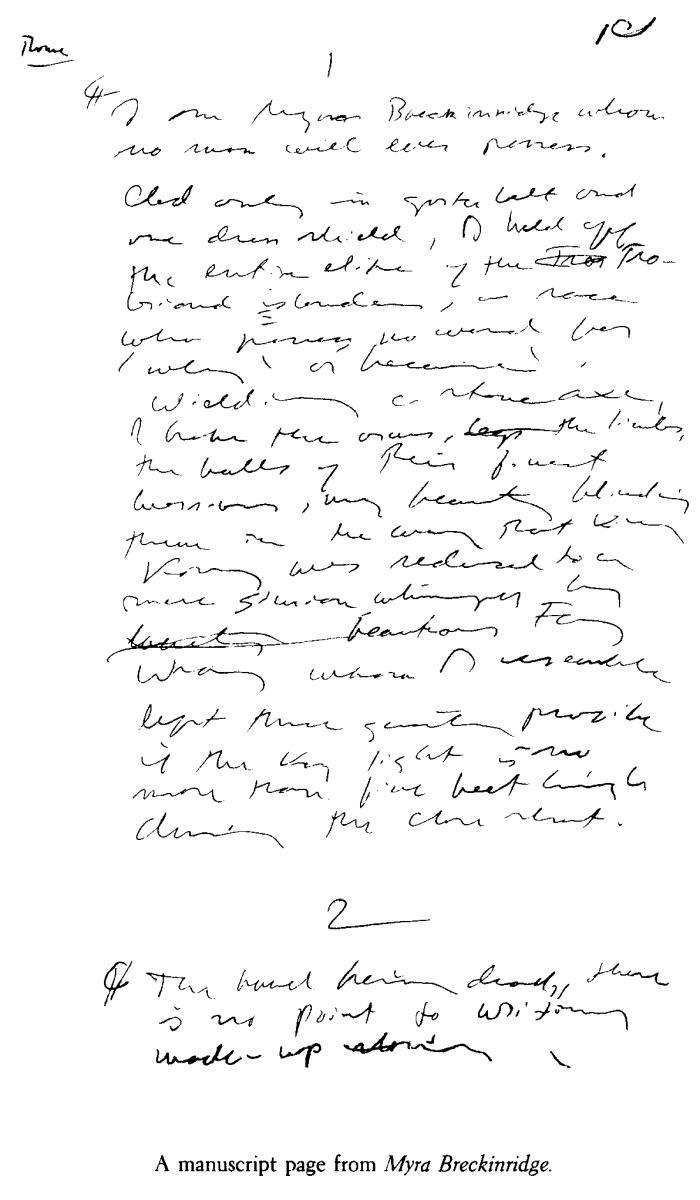 Rome
1
I am Myra Breckinridge whom
no man will ever possess.
Clad only in garter belt and
one dress shield, I held off
the entire elite of the Tro-
briand islanders, a race
who possess no word for
'why' or 'because'.
Wielding a stone axe,
I broke the arms, legs the limbs,
the balls of their finest
warriors, my beauty blinding
them in the way that King
Kong was reduced to a
mere simian whimper by
beauteous Fay
Wray whom I resemble
left three quarter profile
if the key light is no
more than five feet high
during the close shot.
2
The novel being dead, there
is no point to writing
made-up stories
A manuscript page from Myra Breckinridge.